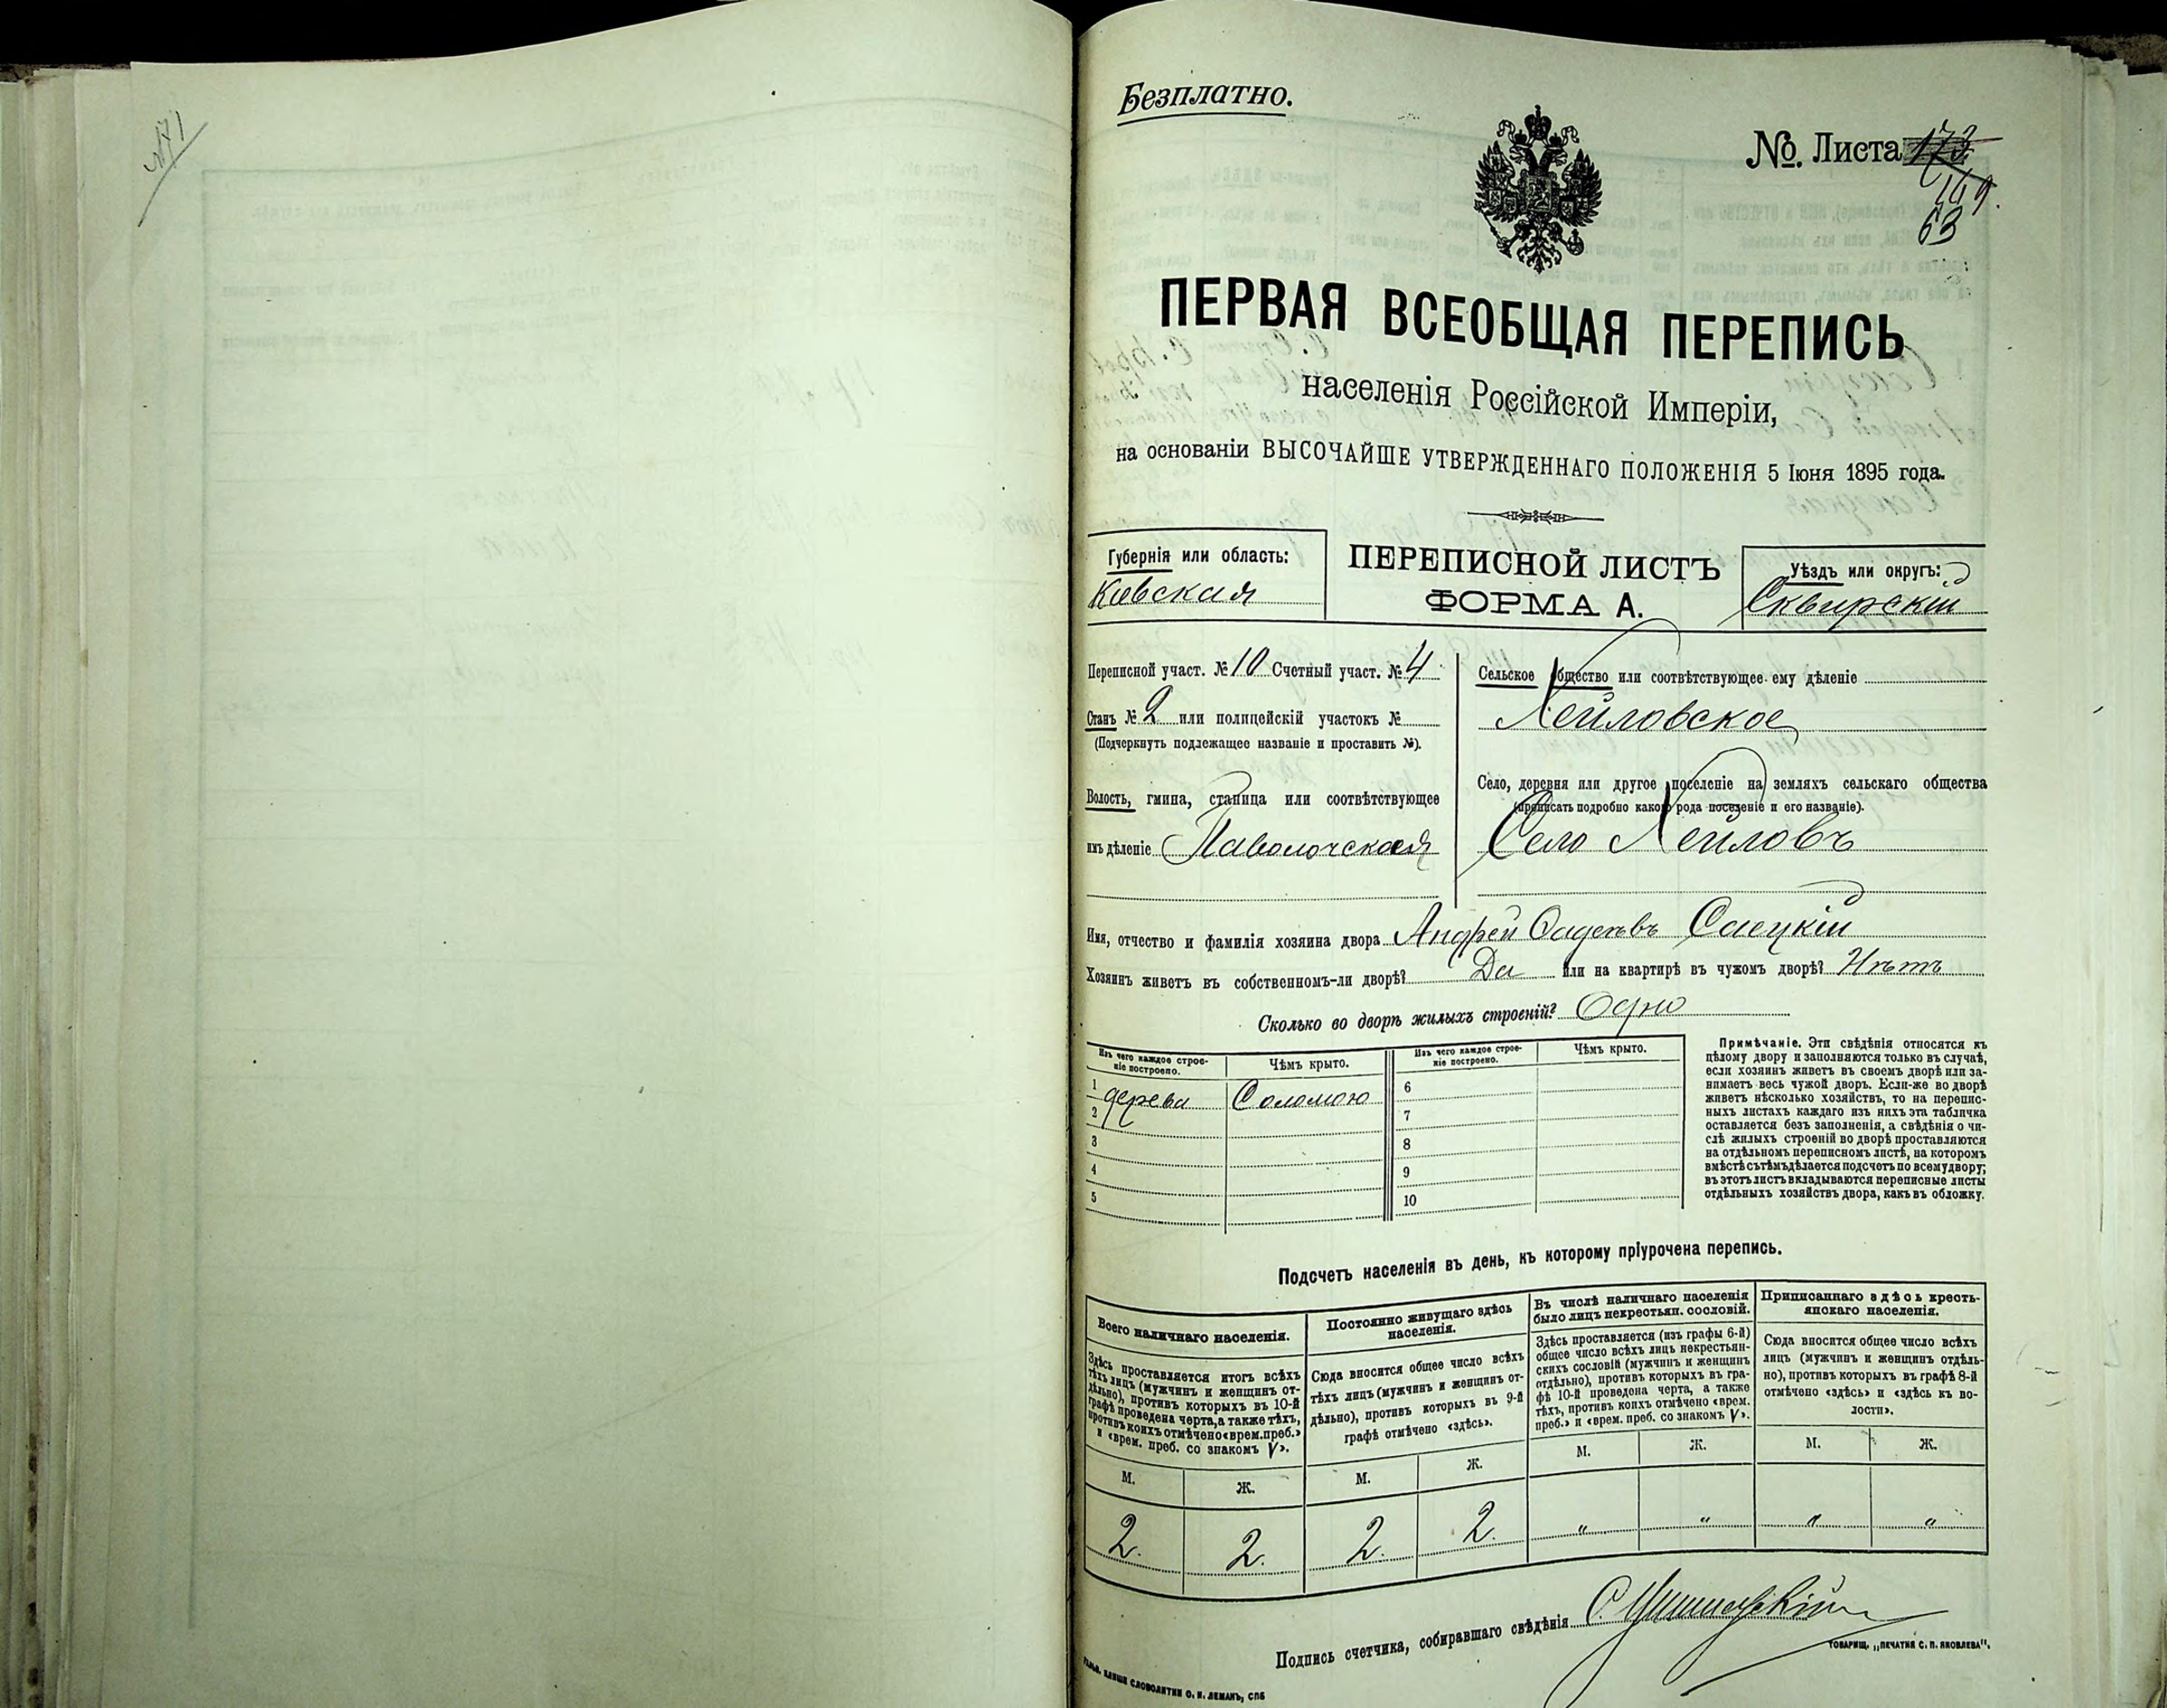 № 71
Безплатно.
№. Листа 173
169.
63
ПЕРВАЯ ВСЕОБЩАЯ ПЕРЕПИСЬ
населенія Россійской Имперіи,
на основаніи ВЫСОЧАЙШЕ УТВЕРЖДЕННАГО ПОЛОЖЕНІЯ 5 Іюня 1895 года.
Губернія или область:
Кіевская
ПЕРЕПИСНОЙ ЛИСТЪ
ФОРМА А.
Уѣздъ или округъ:
Сквирскій
Переписной участ. № 10 Счетный участ. № 4
Станъ № 2 или полицейскій участокъ №
(Подчеркнуть подлежащее названіе и проставить №).
Волость, гмина, станица или соотвѣтствующее
имъ дѣленіе Паволочская
Сельское общество или соотвѣтствующее ему дѣленіе
Село, деревня или другое поселеніе на земляхъ сельскаго общества
(прописать подробно какого рода поселеніе и его названіе).
Село
Имя, отчество и фамилія хозяина двора Андрей Саецкій
Хозяинъ живетъ въ собственномъ-ли дворѣ? Да или на квартирѣ въ чужомъ дворѣ? Нѣтъ
Сколько во дворѣ жилыхъ строеній? Одно
Изъ чего каждое строе-
ніе построено.
Чѣмъ крыто.
Изъ чего каждое строе-
ніе построено.
Чѣмъ крыто.
1 дерева Соломою
2
3
4
5
6
7
8
9
10
Примѣчаніе. Эти свѣдѣнія относятся къ
цѣлому двору и заполняются только въ случаѣ,
если хозяинъ живетъ въ своемъ дворѣ или за-
нимаетъ весь чужой дворъ. Если-же во дворѣ
живетъ нѣсколько хозяйствъ, то на перепис-
ныхъ листахъ каждаго изъ нихъ эта табличка
оставляется безъ заполненія, а свѣдѣнія о чи-
слѣ жилыхъ строеній во дворѣ проставляются
на отдѣльномъ переписномъ листѣ, на которомъ
вмѣстѣ съ тѣмъ дѣлается подсчетъ по всему двору;
въ этотъ листъ вкладываются переписные листы
отдѣльныхъ хозяйствъ двора, какъ въ обложку.
Подсчетъ населенія въ день, къ которому пріурочена перепись.
Всего наличнаго населенія.
Здѣсь проставляется итогъ всѣхъ
тѣхъ лицъ (мужчинъ и женщинъ от-
дѣльно), противъ которыхъ въ 10-й
графѣ проведена черта, а также тѣхъ,
противъ коихъ отмѣчено «врем. преб.»
и «врем. преб. со знакомъ V».
М.
Ж.
2.
2.
Постоянно живущаго здѣсь
населенія.
Сюда вносится общее число всѣхъ
тѣхъ лицъ (мужчинъ и женщинъ от-
дѣльно), противъ которыхъ въ 9-й
графѣ отмѣчено «здѣсь».
М.
Ж.
2.
2.
Въ числѣ наличнаго населенія
было лицъ некрестьян. сословій.
Здѣсь проставляется (изъ графы 6-й)
общее число всѣхъ лицъ некрестьян-
скихъ сословій (мужчинъ и женщинъ
отдѣльно), противъ которыхъ въ гра-
фѣ 10-й проведена черта, а также
тѣхъ, противъ коихъ отмѣчено «врем.
преб.» и «врем. преб. со знакомъ V».
М.
Ж.
"
"
Приписаннаго здѣсь кресть-
янскаго населенія.
Сюда вносится общее число всѣхъ
лицъ (мужчинъ и женщинъ отдѣль-
но), противъ которыхъ въ графѣ 8-й
отмѣчено «здѣсь» и «здѣсь къ во-
лости».
М.
Ж.
"
"
Подпись счетчика, собиравшаго свѣдѣнія
ТОВАРИЩ. „ПЕЧАТНЯ С. П. ЯКОВЛЕВА".
СЛОВОЛИТНИ О. И. ЛЕМАНЪ, СПБ